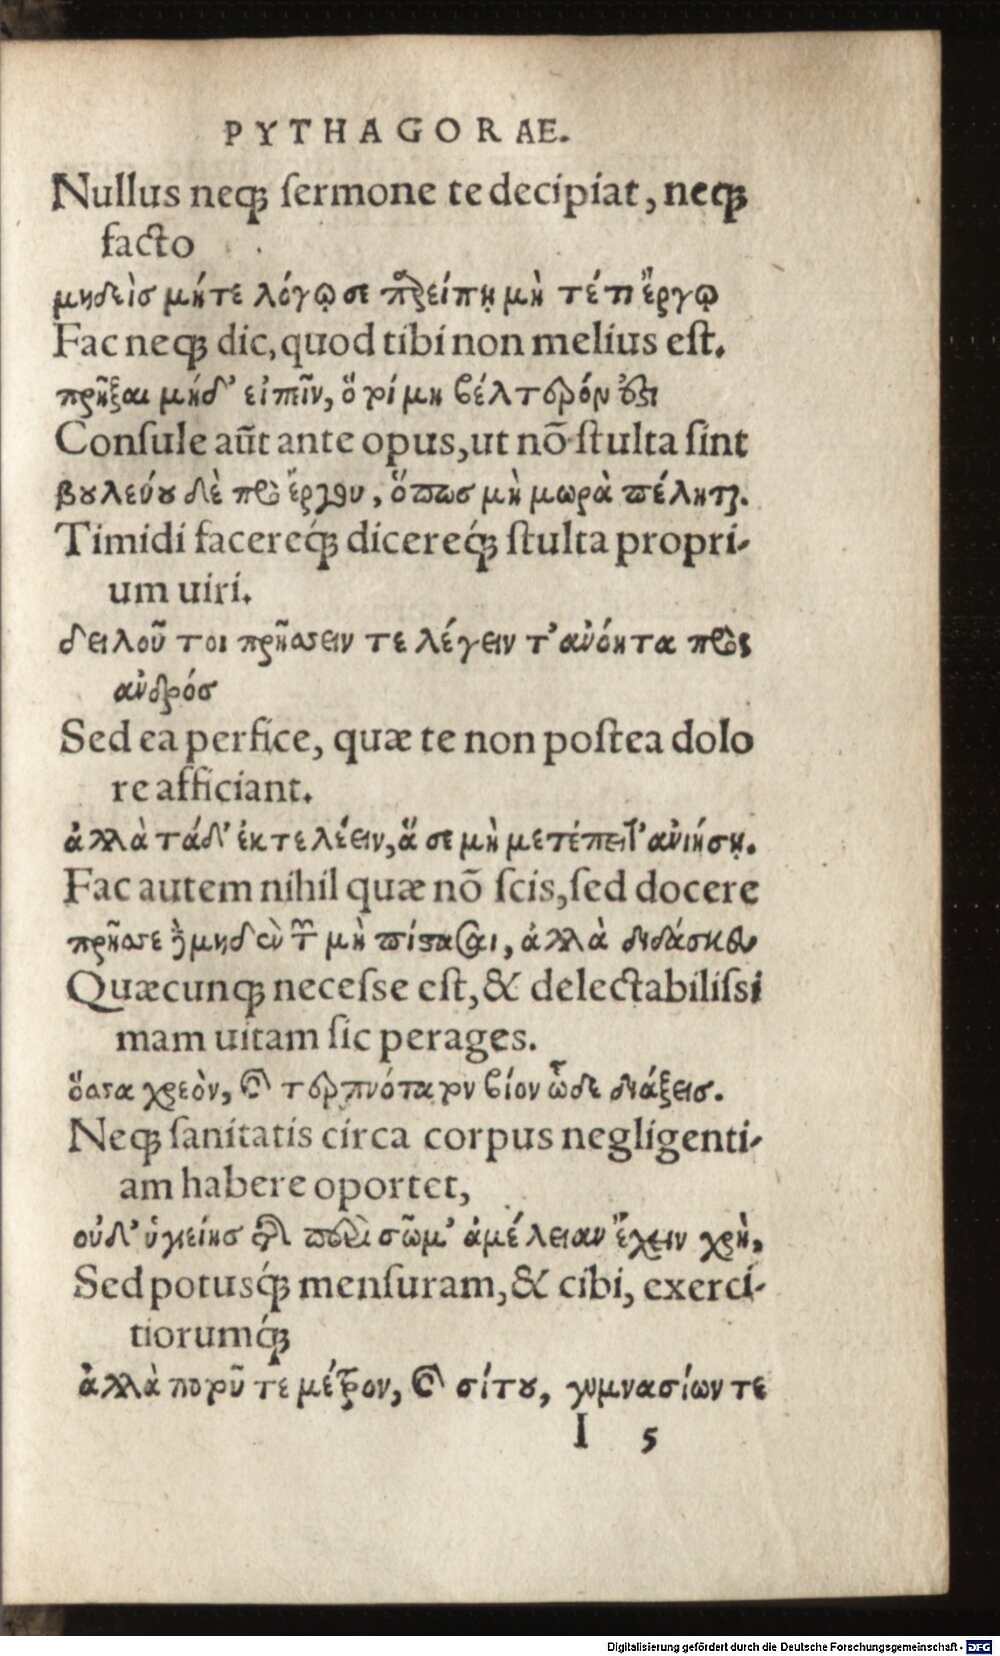 PYTHAGORAE.
Nullus neqꝫ ſermone te decipiat, neqꝫ
facto
μηδεὶσ μήτε λόγῳ σε παρείπῃ μὴ τέ τι ἔργῳ
Fac neqꝫ dic, quod tibi non melius eſt.
πρῆξαι μήδ’ εἰπεῖν, ὅ τοί μη βέλτερόν ὄξι
Conſule aũt ante opus, ut nõ ſtulta ſint
βουλεύου δὲ πρὸ ἔργου, ὅπωσ μὴ μωρὰ πέληται.
Timidi facereq́ꝫ dicereq́ꝫ ſtulta propri-
um uiri.
δειλοῦ τοι πρήσσειν τε λέγειν τ’ ἀνόητα πρὸς
ἀνδρόσ
Sed ea perfice, quæ te non poſtea dolo
re afficiant.
ἀλλὰ τάδ’ ἐκτελέειν, ἅ σε μὴ μετέπειτ’ ἀνιήσῃ.
Fac autem nihil quæ nõ ſcis, ſed docere
πρῆσσε δὲ μηδὲν τῶν μὴ πίστασαι, ἀλλὰ διδάσκευ
Quæcunqꝫ neceſſe eſt, & delectabiliſsi
mam uitam ſic perages.
ὅσσα χρεὸν, καὶ τερπνότατον βίον ὧδε διάξεισ.
Neqꝫ ſanitatis circa corpus negligenti-
am habere oportet,
οὐδ’ ὑγιείησ τῆς περὶ σῶμ’ ἀμέλειαν ἔχειν χρὴ,
Sed potusq́ꝫ menſuram, & cibi, exerci-
tiorumq́ꝫ
ἀλλὰ ποτοῦ τε μέτρον, καὶ σίτου, γυμνασίων τε
I 5
Digitalisierung gefördert durch die Deutsche Forschungsgemeinschaft - DFG